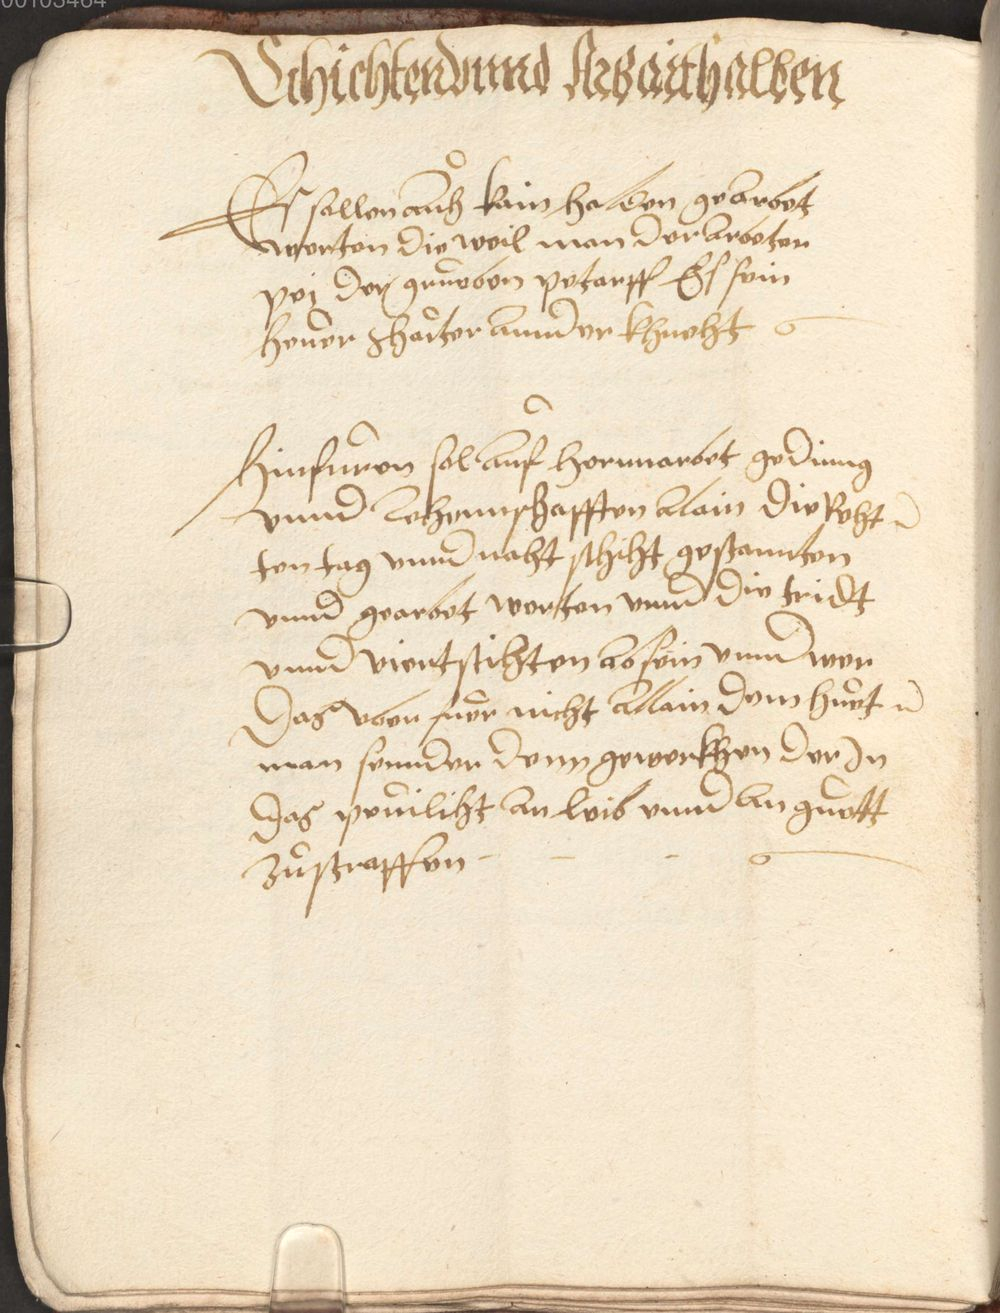 00103464
Schichten vnnd Arbaithalben
Es sollen auch kain halben gearbet
werten die weil man der arbeter
pei der grueben petarff Es sein
heuer Kharter annder Khnecht
Hinfuron sol auf herrnarbet geding
vnnd Lehennschafften alain die Recht
ten tag vnnd nacht schicht gestannten
vnnd gearbet werten vnnd die tridt
vnnd viert schihten absein vnnd wer
Das vber fuer nicht allain dem huet
man sonnder denn gewerkhen der In
das peuilicht an leib vnnd an guett
zustraffen